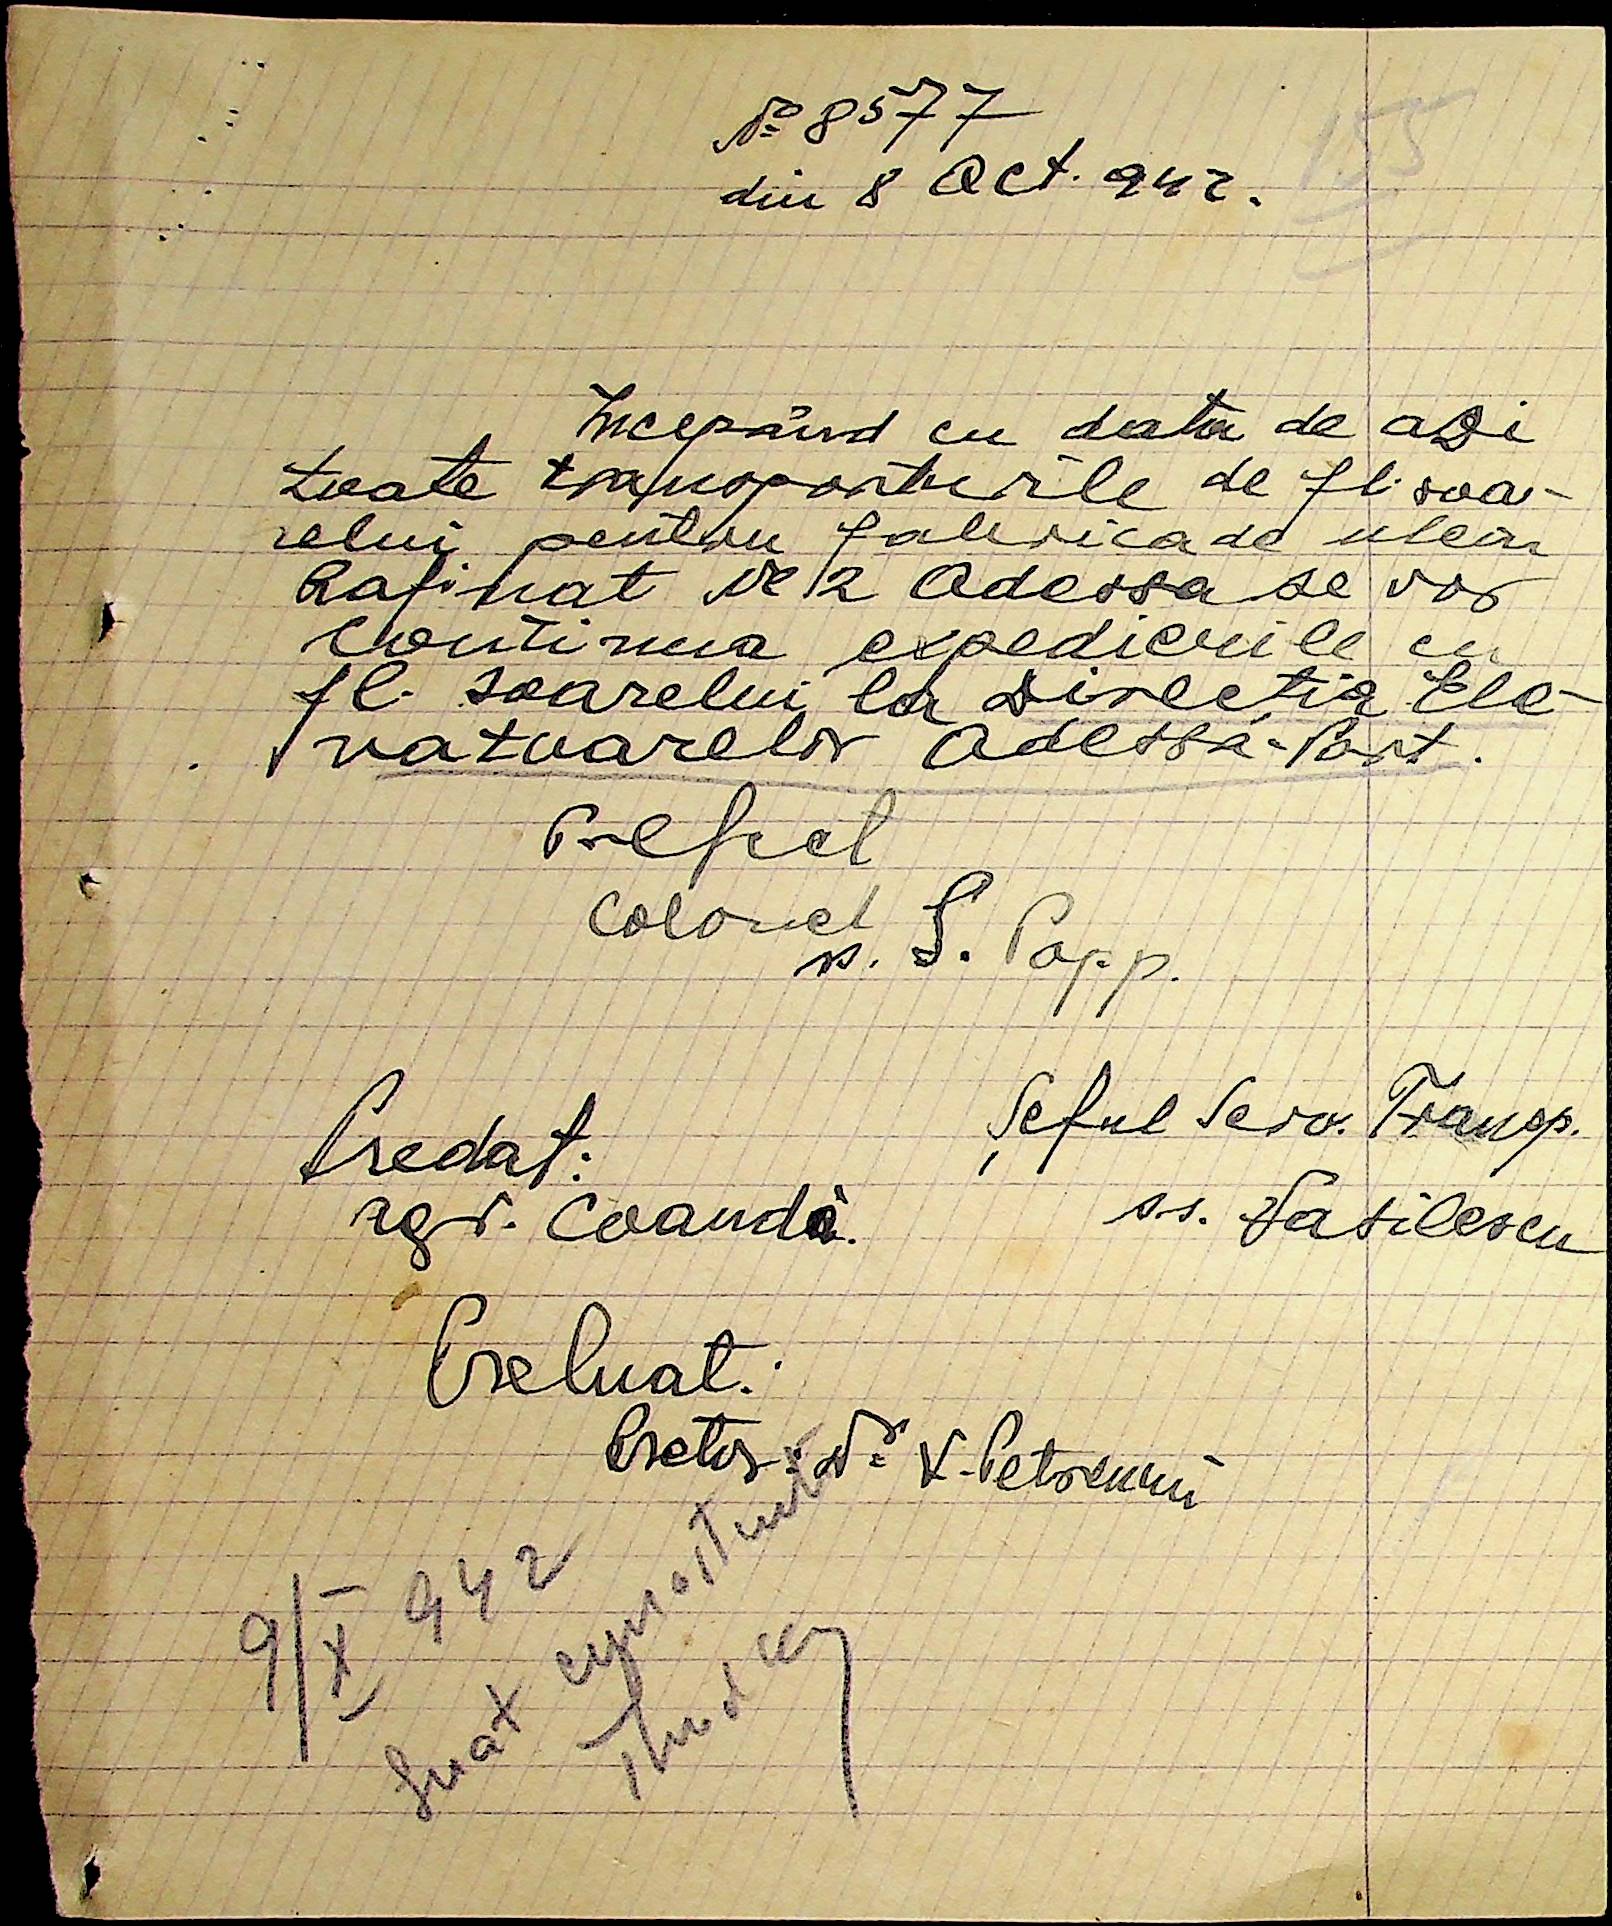 № 8577
155
din 8 Oct. 942.
Începând cu data de azi
toate transporturile de fl. soa-
relui pentru fabrica de uleiu
Rafinat № 2 Odessa se vor
continua expedierile cu
fl. soarelui la Direcția Ele-
vatoarelor Odessa-Port.
Prefect
Colonel
s. S. Papp.
Predat:
Șeful Serv. Transp.
sgt. Coandă.
s.s. Vasilescu
Preluat:
Pretor: Dr V. Petreanu
9/X 942
Luat cunoștință